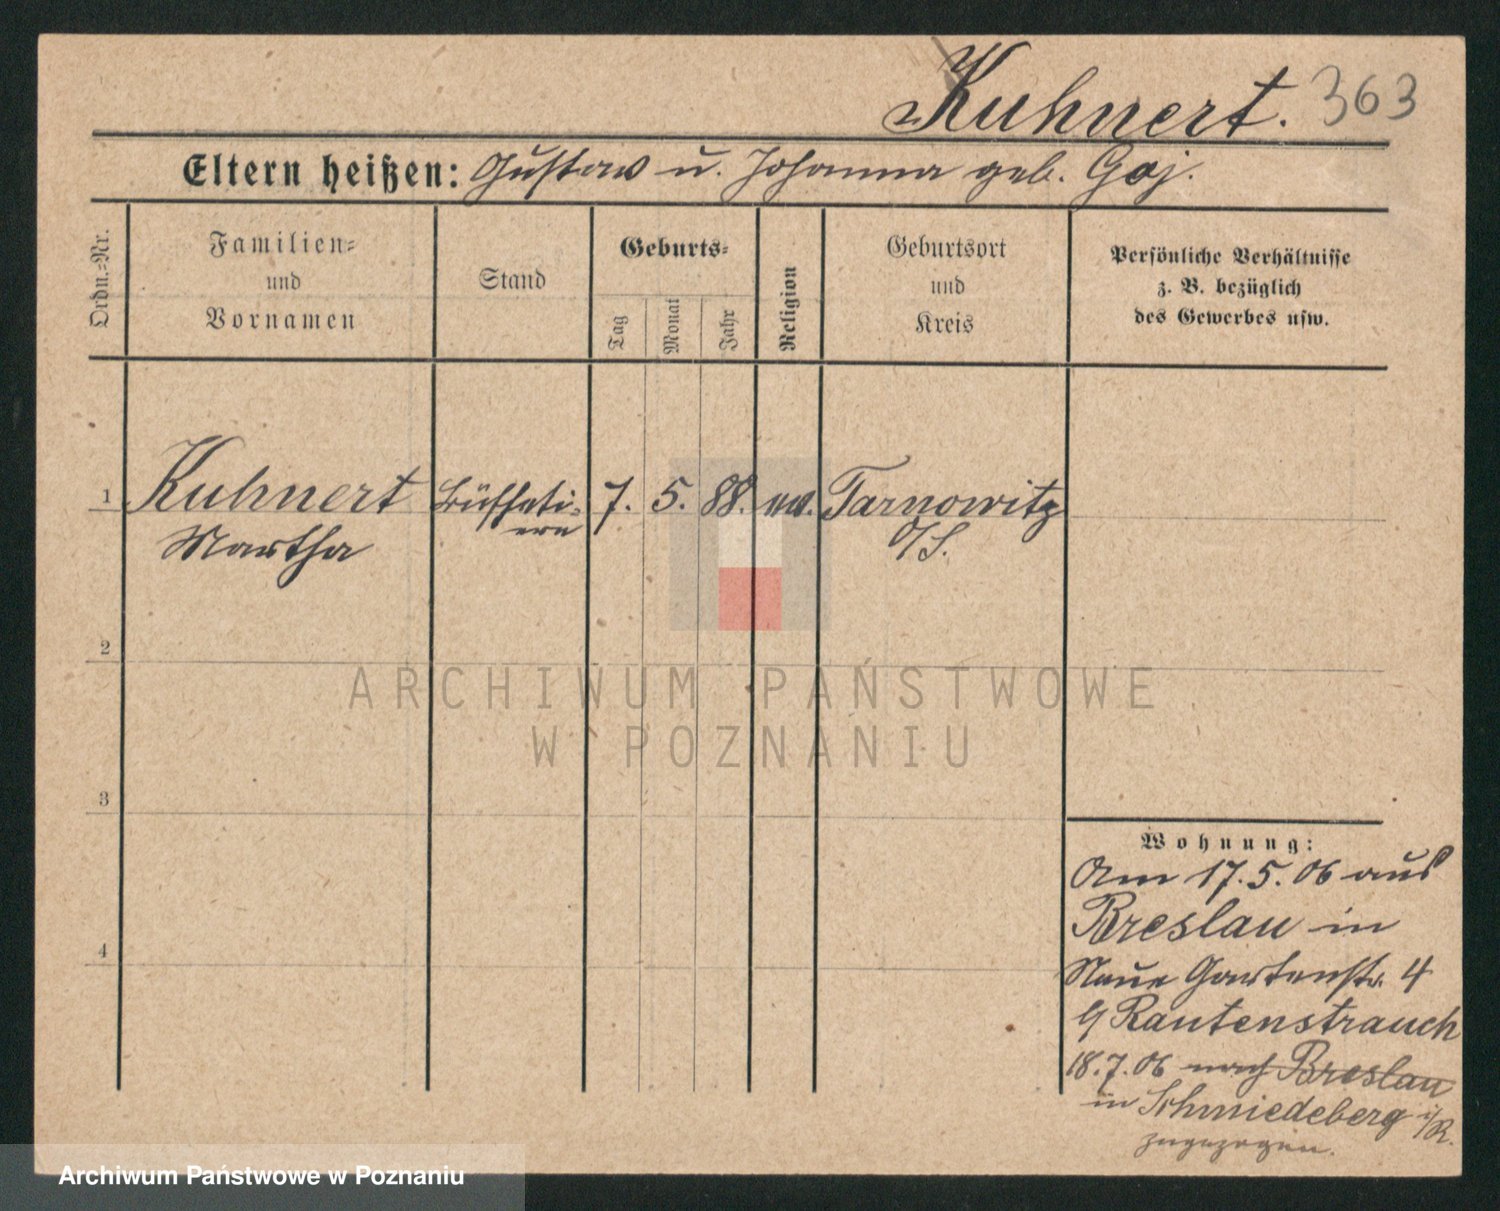 Kuhnert. 363
Eltern heißen: Gustav u. Johanna geb. Goj.
Ordn.=Nr.
Familien=
und
Vornamen
Stand
Geburts=
Tag
Monat
Jahr
Religion
Geburtsort
und
Kreis
Persönliche Verhältnisse
z. B. bezüglich
des Gewerbes usw.
1 Kuhnert Büffeti= 7. 5. 88. Tarnowitz
Martha ern O/S.
2
3
4
ARCHIWUM PAŃSTWOWE
W POZNANIU
Wohnung:
Am 17.5.06 aus
Breslau in
Neue Gartenstr. 4
Rautenstrauch
18.7.06 nach Breslau
in Schmiedeberg i/R.
zugezogen.
Archiwum Państwowe w Poznaniu